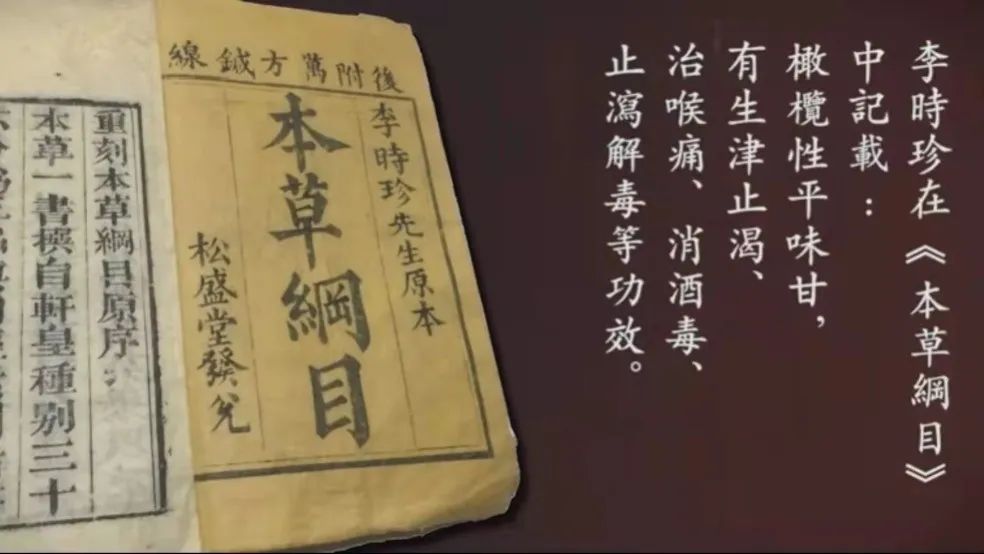 李時珍在《本草綱目》
中記載：
橄欖性平味甘，
有生津止渴、
治喉痛、消酒毒、
止瀉解毒等功效。
後附萬方鍼線
李時珍先生原本
本草綱目
松盛堂發兌
重刻本草綱目原序
本草一書撰自軒皇種別三十